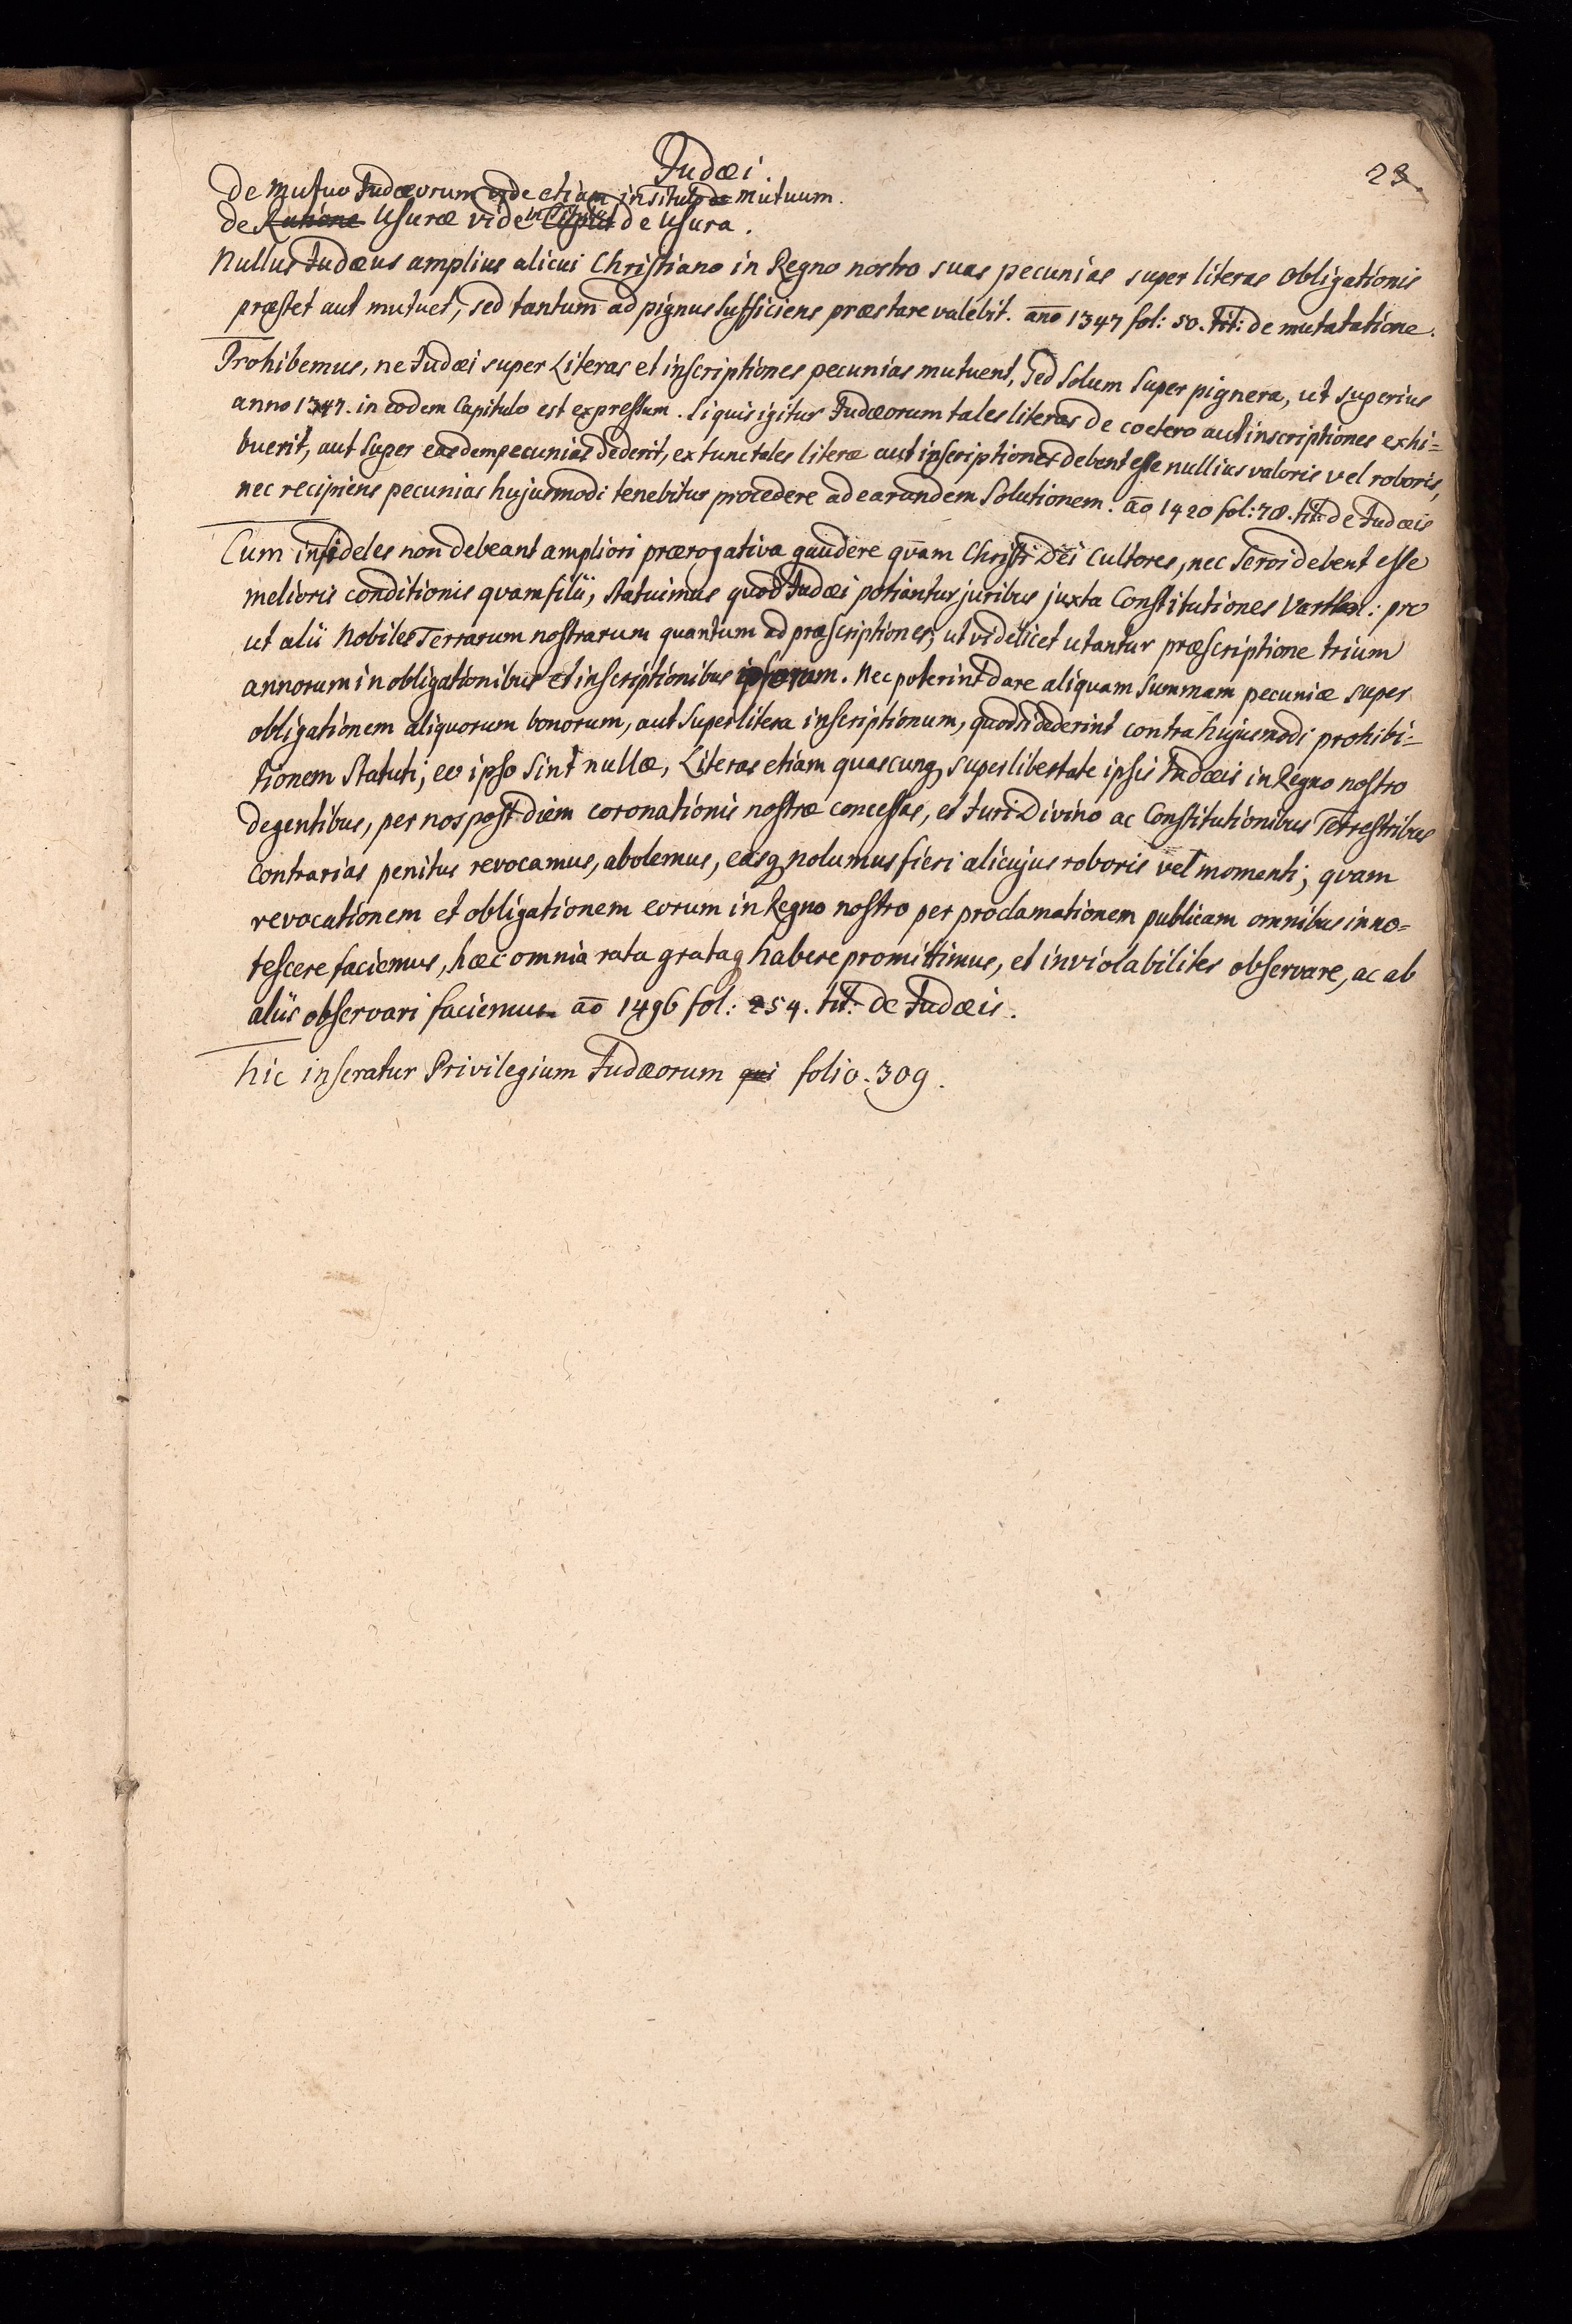 Judæi.
23.
de Mutuo Judæorum vide etiam in titulo de mutuum.
de Ratione Usuræ vide in de Usura.
Nullus Judæus amplius alicui Christiano in Regno nostro suas pecunias super literas obligationis
præstet aut mutuet, sed tantum ad pignus sufficiens præstare valebit. año 1347 fol: 50. tit: de mutatatione.
Prohibemus, ne Judæi super Literas et inscriptiones pecunias mutuent, sed solum super pignera, ut superius
anno 1347. in eodem Capitulo est expressum. Si quis igitur Judæorum tales literas de coetero aut inscriptiones exhi=
buerit, aut super easdem pecunias dederit, ex tunc tales literæ aut inscriptiones debent esse nullius valoris vel roboris,
nec recipiens pecunias hujusmodi tenebitur procedere ad earundem Solutionem. ao 1420 fol: 78. tit: de Judæis
Cum infideles non debeant ampliori prærogativa gaudere qvam Christi Dei Cultores, nec Servi debent esse
melioris conditionis qvam filii, statuimus quod Judæi potiantur juribus juxta Constitutiones Varthen.: pro
ut alii Nobiles Terrarum nostrarum quantum ad præscriptiones; ut videlicet utantur præscriptione trium
annorum in obligationibus et inscriptionibus ipsorum. Nec poterint dare aliquam summam pecuniæ super
obligationem aliquorum bonorum, aut super litera inscriptionum, quod si dederint contra hujusmodi prohibi=
tionem Statuti, eo ipso sint nullæ, Literas etiam quascunq superlibertate ipsis Judæis in Regno nostro
degentibus, per nos post diem coronationis nostræ concessas, et Juri Divino ac Constitutionibus Terrestribus
contrarias penitus revocamus, abolemus, easq nolumus fieri alicujus roboris vel momenti; qvam
revocationem et obligationem eorum in Regno nostro per proclamationem publicam omnibus inno=
tescere faciemus, hæc omnia rata grataq habere promittimus, et inviolabiliter observare, ac ab
aliis observari faciemus. ao 1496 fol: 254. tit: de Judæis.
hic inseratur Privilegium Judæorum qui folio. 309.